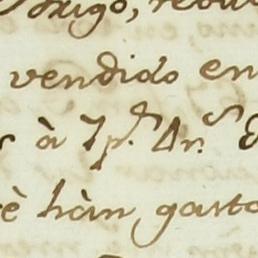 trigo, 
vendido en
à 7p.s 4r.s
è hàn gasto